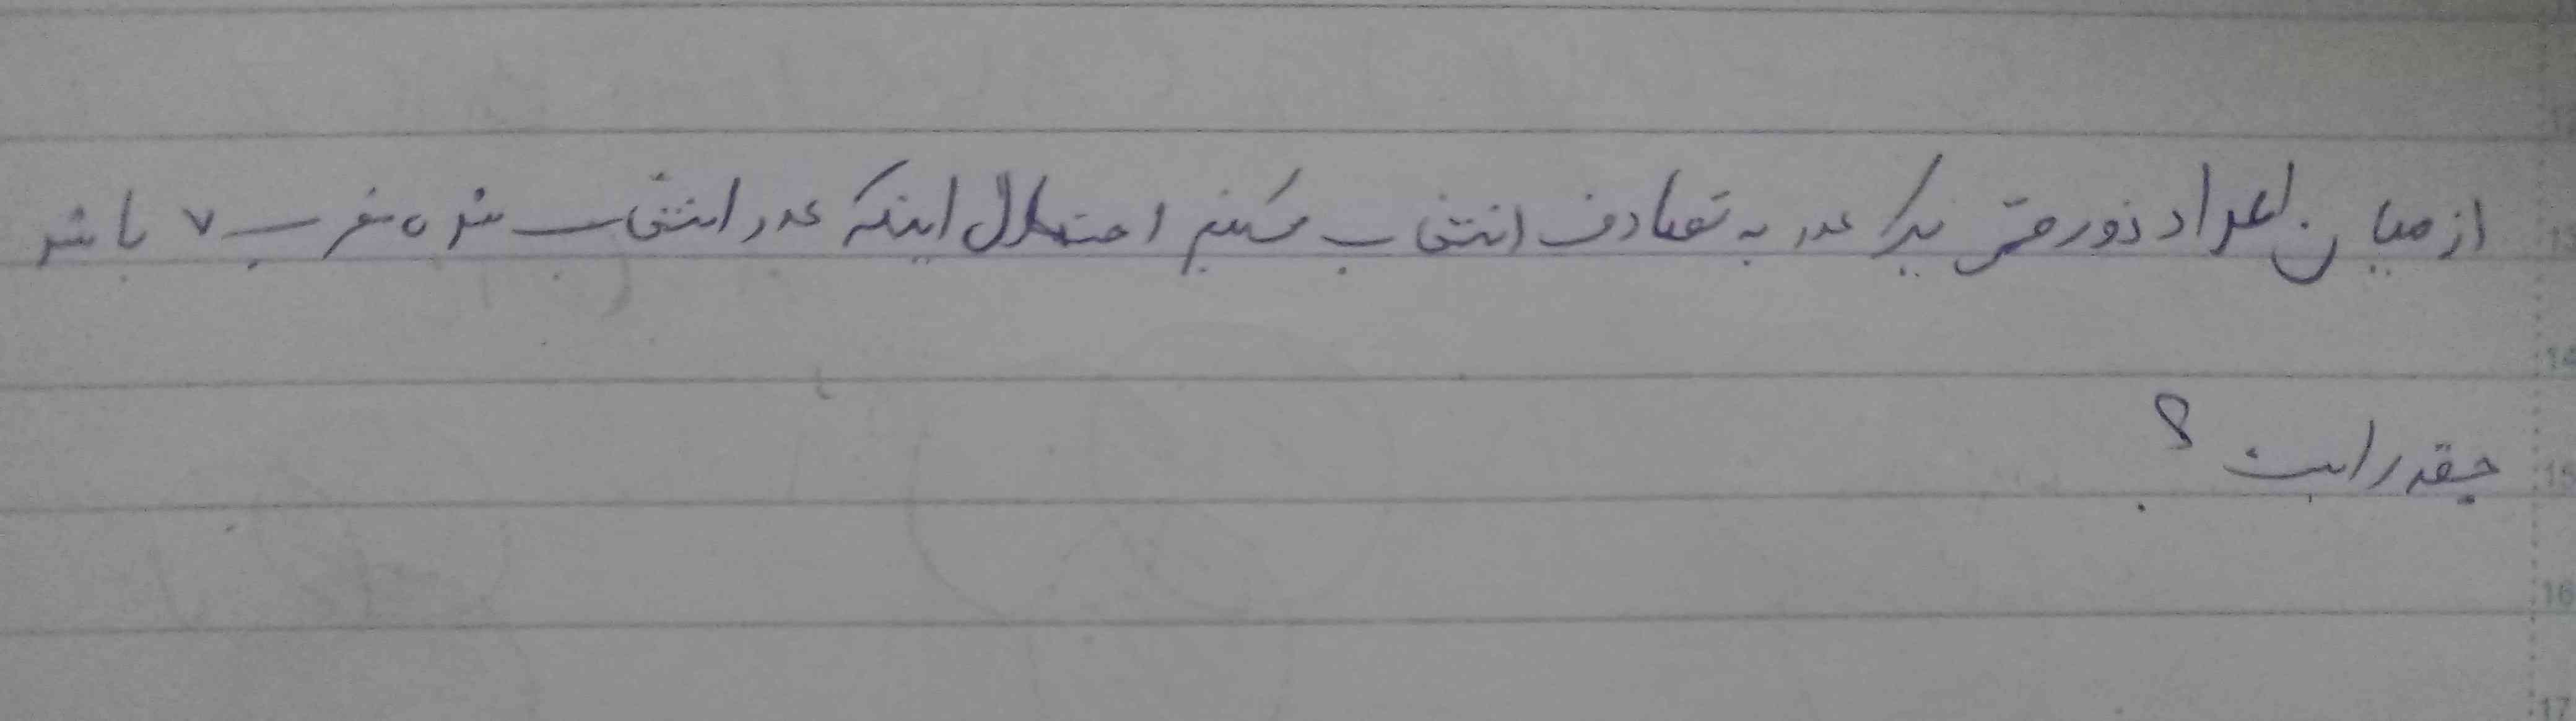 از میان اعداد دورقمی یک عدد به تصادف انتخاب میکنیم احتمال اینکه عدد انتخاب شده مضرب ۷ باشد
چقدر است ؟